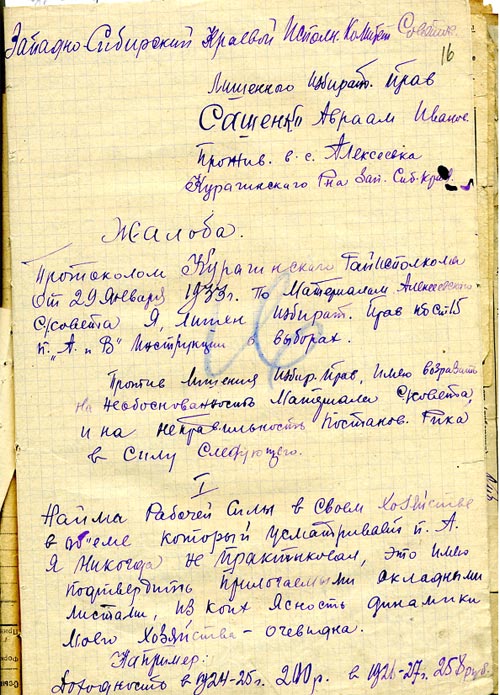 Западно-Сибирский Краевой Исполн. Комитет Советов.
16
Лишенного Избират. Прав
Сащенко Авраам Иванов.
Прожив. в. с. Алексеевка
Курагинского Р-на Зап. Сиб. края.
Жалоба.
Протоколом Курагинского Райисполкома
от 29 Января 1933 г. По Материалам Алексеевского
С/совета Я, лишен Избират. Прав по Ст 15
п. "А. и В" Инструкции о выборах.
Против Лишения Избир. Прав, Имею возразить
На Необоснованность Материала С/совета,
и на неправильность Постанов. Рика
в Силу Следующего.
I
Найма Рабочей Силы в Своем Хозяйстве
в об"еме который усматривает п. А.
Я Никогда не Практиковал, это Имею
подтвердить Прилогаемыми окладными
листами, из коих Ясность динамики
Моего Хозяйства - очевидна.
Например:
Доходность в 1924-25 г. 200 р. в 1926-27 г. 258 руб.